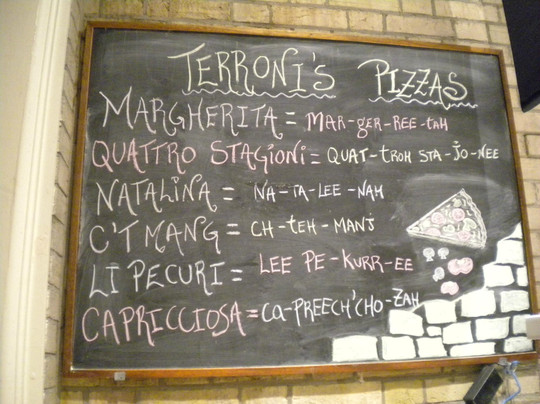 TERRONI'S PIZZAS
MARGHERITA = MAR-GER-REE-TAH
QUATTRO STAGIONI = QUAT-TROH STA-JO-NEE
NATALINA = NA-TA-LEE-NAH
C'T MANG = CH-TEH-MANJ
LI PECURI = LEE PE-KURR-EE
CAPRICCIOSA = CA-PREECH'CHO-ZAH